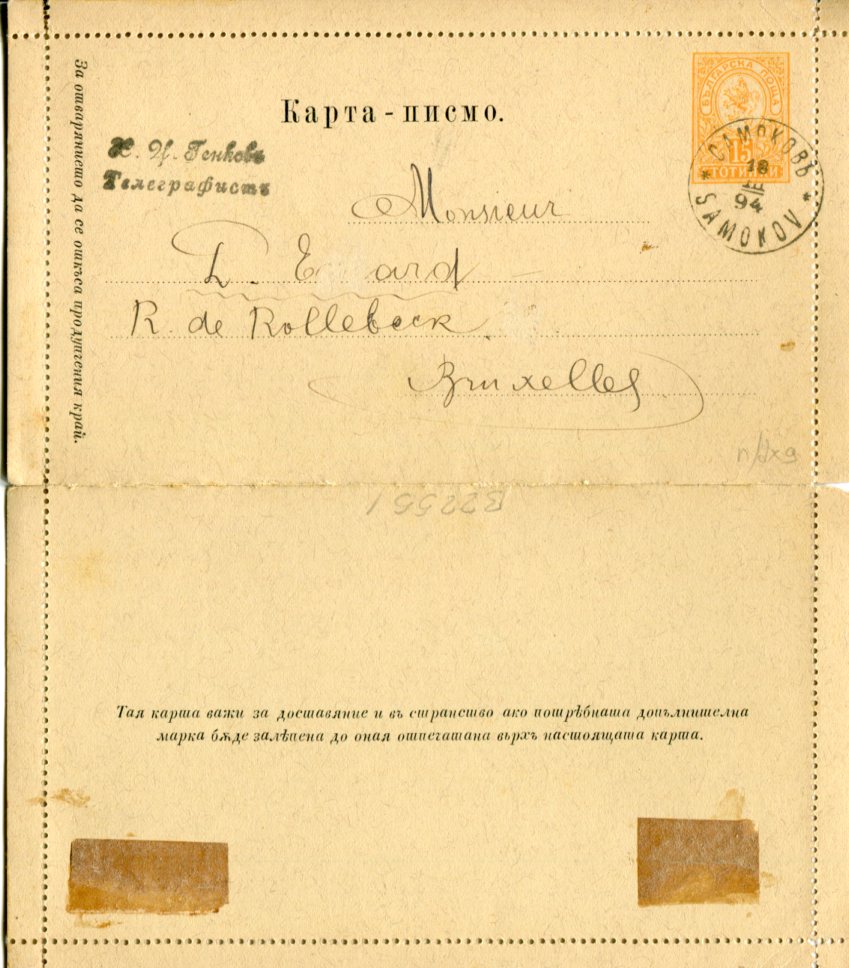 Карта - писмо.
БЪЛГАРСКА ПОЩА
15
СТОТИНКИ
САМОКОВЪ
18
III
94
SAMOKOV
Х. Ц. Генковъ
Телеграфистъ
Monsieur
L. E ard
R. de Rollebeek
Bruxelles
За отварянието да се откъса продупчения край.
B22551
Тая карта важи за доставяние и въ странство ако потрѣбната допълнителна
марка бѫде залѣпена до оная отпечатана върхъ настоящата карта.